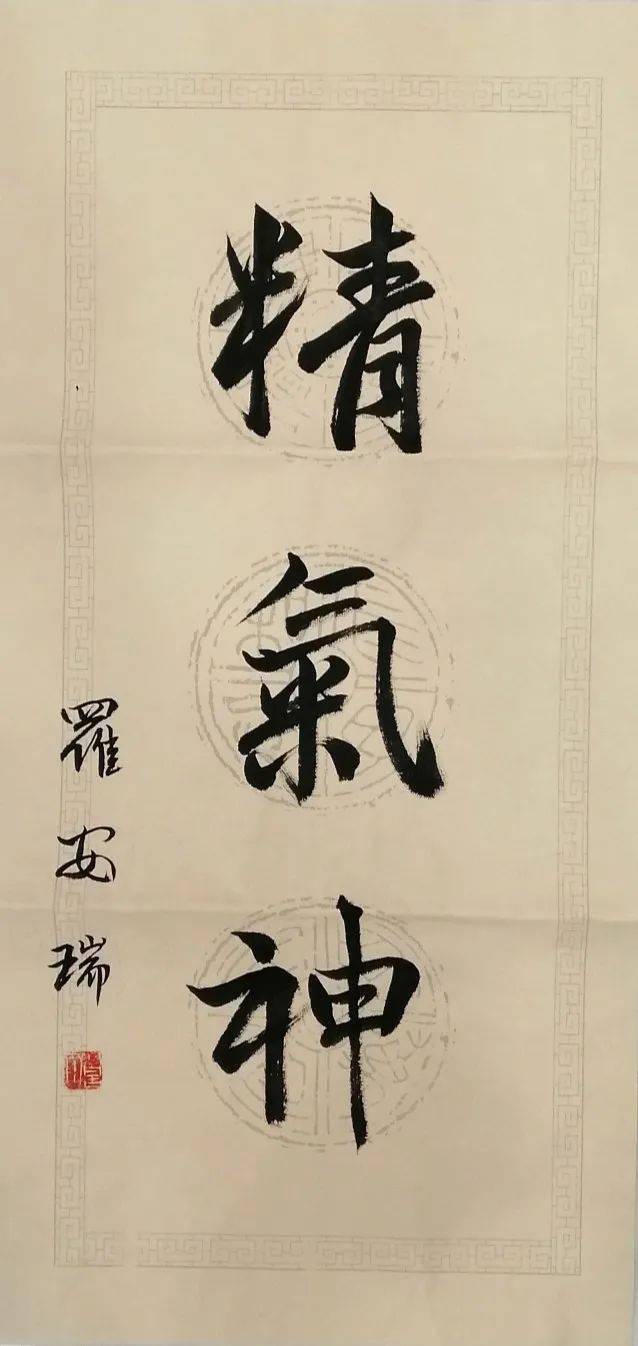 精氣神
羅安瑞